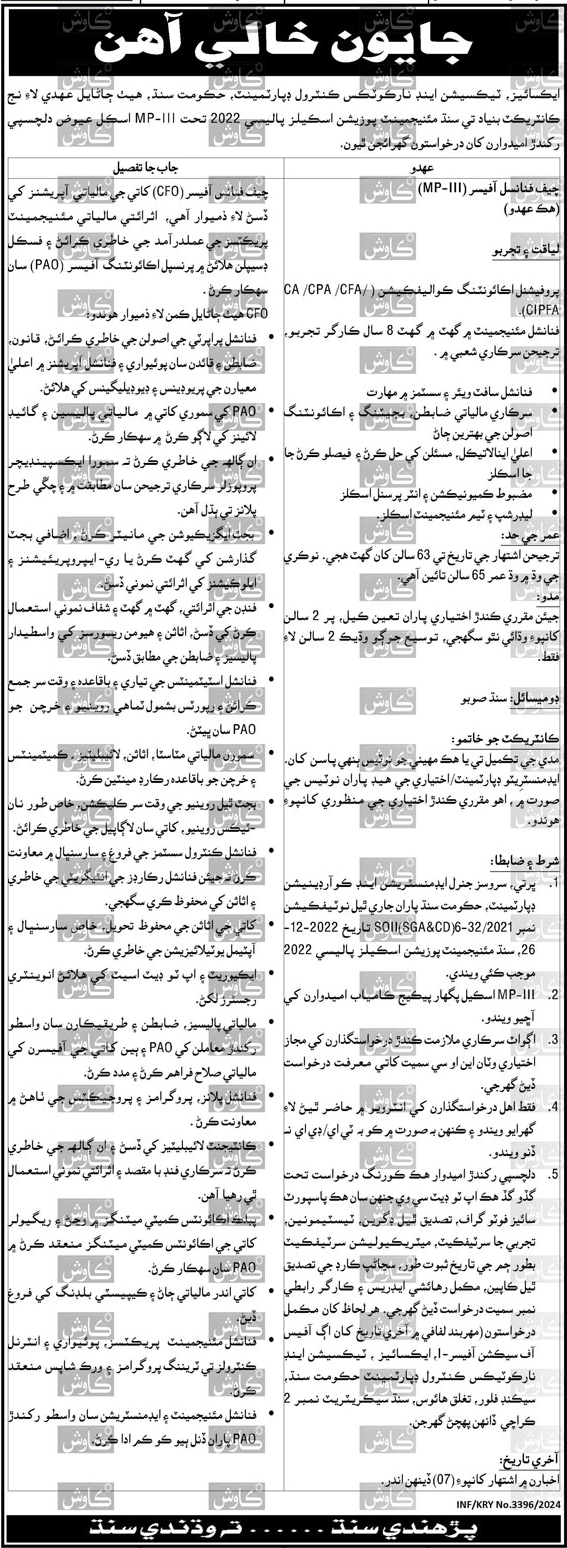 جايون خالي آهن
ايڪسائيز، ٽيڪسيشن اينڊ نارڪوٽڪس ڪنٽرول ڊپارٽمينٽ، حڪومت سنڌ، هيٺ ڄاڻايل عهدي لاءِ نج
ڪانٽريڪٽ بنياد تي سنڌ مئنيجمينٽ پوزيشن اسڪيلز پاليسي 2022 تحت MP-III اسڪيل عيوض دلچسپي
رکندڙ اميدوارن کان درخواستون گهرائجن ٿيون.
عهدو
چيف فنانسل آفيسر (MP-III)
(هڪ عهدو)
لياقت ۽ تجربو
پروفيشنل اڪائونٽنگ ڪواليفڪيشن (CA /CPA /CFA/
CIPFA).
فنانشل مئنيجمينٽ ۾ گهٽ ۾ گهٽ 8 سال ڪارگر تجربو،
ترجيحن سرڪاري شعبي ۾.
• فنانشل سافٽ ويئر ۽ سسٽمز ۾ مهارت
• سرڪاري مالياتي ضابطن، بجيٽنگ ۽ اڪائونٽنگ
اصولن جي بهترين ڄاڻ
• اعليٰ اينالاٽيڪل، مسئلن کي حل ڪرڻ ۽ فيصلو ڪرڻ جا
جا اسڪلز
• مضبوط ڪميونيڪيشن ۽ انٽر پرسنل اسڪلز
• ليڊرشپ ۽ ٽيم مئنيجمينٽ اسڪلز.
عمر جي حد:
ترجيحن اشتهار جي تاريخ تي 63 سالن کان گهٽ هجي. نوڪري
جي وڌ ۾ وڌ عمر 65 سالن تائين آهي.
مدو:
جيئن مقرري ڪندڙ اختياري پاران تعين ڪيل، پر 2 سالن
کانپوءِ وڌائي نٿو سگهجي، توسيع جرڳو وڌيڪ 2 سالن لاءِ
فقط.
ڊوميسائل: سنڌ صوبو
ڪانٽريڪٽ جو خاتمو:
مدي جي تڪميل تي يا هڪ مهيني جو نوٽيس ٻنهي پاسن کان.
ايڊمنسٽريٽو ڊپارٽمينٽ/اختياري جي هيڊ پاران نوٽيس جي
صورت ۾، اهو مقرري ڪندڙ اختياري جي منظوري کانپوءِ
هوندو.
شرط ۽ ضابطا:
1. ڀرتي، سروسز جنرل ايڊمنسٽريشن اينڊ ڪوآرڊينيشن
ڊپارٽمينٽ، حڪومت سنڌ پاران جاري ٿيل نوٽيفڪيشن
نمبر SOII(SGA&CD)6-32/2021 تاريخ 2022-12-
26، سنڌ مئنيجمينٽ پوزيشن اسڪيلز پاليسي 2022
موجب ڪئي ويندي.
2. MP-III اسڪيل پگهار پيڪيج ڪامياب اميدوارن کي
آڇيو ويندو.
3. اڳواٽ سرڪاري ملازمت ڪندڙ درخواستگذارن کي مجاز
اختياري وٽان اين او سي سميت کاتي معرفت درخواست
ڏيڻ گهرجي.
4. فقط اهل درخواستگذارن کي انٽرويو ۾ حاضر ٿيڻ لاءِ
گهرايو ويندو ۽ ڪنهن به صورت ۾ ڪو به ٽي اي/ڊي اي نه
ڏنو ويندو.
5. دلچسپي رکندڙ اميدوار هڪ ڪورنگ درخواست تحت
گڏوگڏ هڪ اپ ٽو ڊيٽ سي وي جنهن سان هڪ پاسپورٽ
سائيز فوٽو گراف، تصديق ٿيل ڊگرين، ٽيسٽيمونين،
تجربي جا سرٽيفڪيٽ، ميٽريڪيوليشن سرٽيفڪيٽ
بطور ڄم جي تاريخ ثبوت طور، سڃاڻپ ڪارڊ جي تصديق
ٿيل ڪاپين، مڪمل رهائشي ايڊريس ۽ ڪارگر رابطي
نمبر سميت درخواست ڏيڻ گهرجي. هر لحاظ کان مڪمل
درخواستون (مهربند لفافي ۾ آخري تاريخ کان اڳ آفيس
آف سيڪشن آفيسر-I، ايڪسائيز، ٽيڪسيشن اينڊ
نارڪوٽڪس ڪنٽرول ڊپارٽمينٽ حڪومت سنڌ،
سيڪنڊ فلور، تغلق هائوس، سنڌ سيڪريٽريٽ نمبر 2
ڪراچي ڏانهن پهچڻ گهرجن.
آخري تاريخ:
اخبارن ۾ اشتهار کانپوءِ (07) ڏينهن اندر.
جاب جا تفصيل
چيف فنانس آفيسر (CFO) کاتي جي مالياتي آپريشنز کي
ڏسڻ لاءِ ذميوار آهي، اثرائتي مالياتي مئنيجمينٽ
پريڪٽسز جي عملدرآمد جي خاطري ڪرائڻ ۽ فسڪل
ڊسيپلن هلائڻ ۾ پرنسپل اڪائونٽنگ آفيسر (PAO) سان
سهڪار ڪرڻ.
CFO هيٺ ڄاڻايل ڪمن لاءِ ذميوار هوندو:
• فنانشل پراپرٽي جي اصولن جي خاطري ڪرائڻ، قانون،
ضابطن ۽ قائدن سان پوئيواري ۽ فنانشل آپريشنز ۾ اعليٰ
معيارن جي پريوڊينس ۽ ڊيوڊيليگينس کي هلائڻ.
• PAO کي سموري کاتي ۾ مالياتي پاليسين ۽ گائيڊ
لائينز کي لاڳو ڪرڻ ۾ سهڪار ڪرڻ.
• ان ڳالهه جي خاطري ڪرڻ ته سمورا ايڪسپينڊيچر
پروپوزلز سرڪاري ترجيحن سان مطابقت ۾ ۽ چڱي طرح
پلانز تي ٻڌل آهن.
• بجيٽ ايگزيڪيوشن جي مانيٽر ڪرڻ ۽ اضافي بجيٽ
گذارشن کي گهٽ ڪرڻ يا ري-ايپروپريئيشنز ۽
ايلوڪيشنز کي اثرائتي نموني ڏسڻ.
• فنڊن جي اثرائتي، گهٽ ۾ گهٽ ۽ شفاف نموني استعمال
ڪرڻ کي ڏسڻ، اثاثن ۽ هيومن ريسورسز کي واسطيدار
پاليسيز ۽ ضابطن جي مطابق ڏسڻ.
• فنانشل اسٽيٽمينٽس جي تياري ۽ باقاعده ۽ وقت سر جمع
ڪرائڻ ۽ رپورٽس بشمول ٽماهي روينيو ۽ خرچن جو
PAO سان ڀيٽڻ.
• سمورن مالياتي مٽاسٽا، اثاثن، لائيبلٽيز، ڪميٽمينٽس
۽ خرچن جو باقاعده رڪارڊ مينٽين ڪرڻ.
• بجيٽ ٿيل روينيو جي وقت سر ڪليڪشن، خاص طور نان
-ٽيڪس روينيو، کاتي سان لاڳاپيل جي خاطري ڪرائڻ.
• فنانشل ڪنٽرول سسٽمز جي فروغ ۽ سارسنڀال ۾ معاونت
ڪرڻ ته جيئن فنانشل رڪارڊز جي انٽيگريٽي جي خاطري
۽ اثاثن کي محفوظ ڪري سگهجي.
• کاتي جي اثاثن جي محفوظ تحويل، خاص سارسنڀال ۽
آپٽيمل يوٽيلائيزيشن جي خاطري ڪرڻ.
• ايڪيوريٽ ۽ اپ ٽو ڊيٽ اسيٽ کي هلائڻ انوينٽري
رجسٽرز لکڻ.
• مالياتي پاليسيز، ضابطن ۽ طريقيڪارن سان واسطو
رکندڙ معاملن کي PAO ۽ ٻين کاتي جي آفيسرن کي
مالياتي صلاح فراهم ڪرڻ ۽ مدد ڪرڻ.
• فنانشل پلانز، پروگرامز ۽ پروجيڪٽس جي ٺاهڻ ۾
معاونت ڪرڻ.
• ڪانٽيجنٽ لائيبلٽيز کي ڏسڻ ۽ ان ڳالهه جي خاطري
ڪرڻ ته سرڪاري فنڊ بامقصد ۽ اثرائتي نموني استعمال
ٿي رهيا آهن.
• پبلڪ اڪائونٽس ڪميٽي ميٽنگز ۾ وڃڻ ۽ ريگيولر
کاتي جي اڪائونٽس ڪميٽي ميٽنگز منعقد ڪرڻ ۾
PAO سان سهڪار ڪرڻ.
• کاتي اندر مالياتي ڄاڻ ۽ ڪيپيسٽي بلڊنگ کي فروغ
ڏيڻ.
• فنانشل مئنيجمينٽ پريڪٽسز، پوئيواري ۽ انٽرنل
ڪنٽرولز تي ٽريننگ پروگرامز ۽ ورڪ شاپس منعقد
ڪرڻ.
• فنانشل مئنيجمينٽ ۽ ايڊمنسٽريشن سان واسطو رکندڙ
PAO پاران ڏنل ٻيو ڪو ڪم ادا ڪرڻ.
INF/KRY No.3396/2024
پڙهندي سنڌ ...... ته وڌندي سنڌ